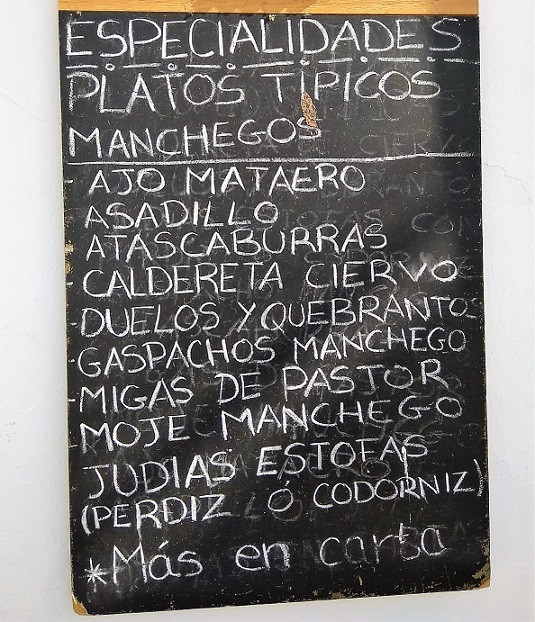 ESPECIALIDADES
PLATOS TÍPICOS
MANCHEGOS
- AJO MATAERO
- ASADILLO
- ATASCABURRAS
- CALDERETA CIERVO
- DUELOS Y QUEBRANTOS
- GASPACHOS MANCHEGO
- MIGAS DE PASTOR
- MOJE MANCHEGO
JUDIAS ESTOFAS
(PERDIZ Ó CODORNIZ)
*Más en carta